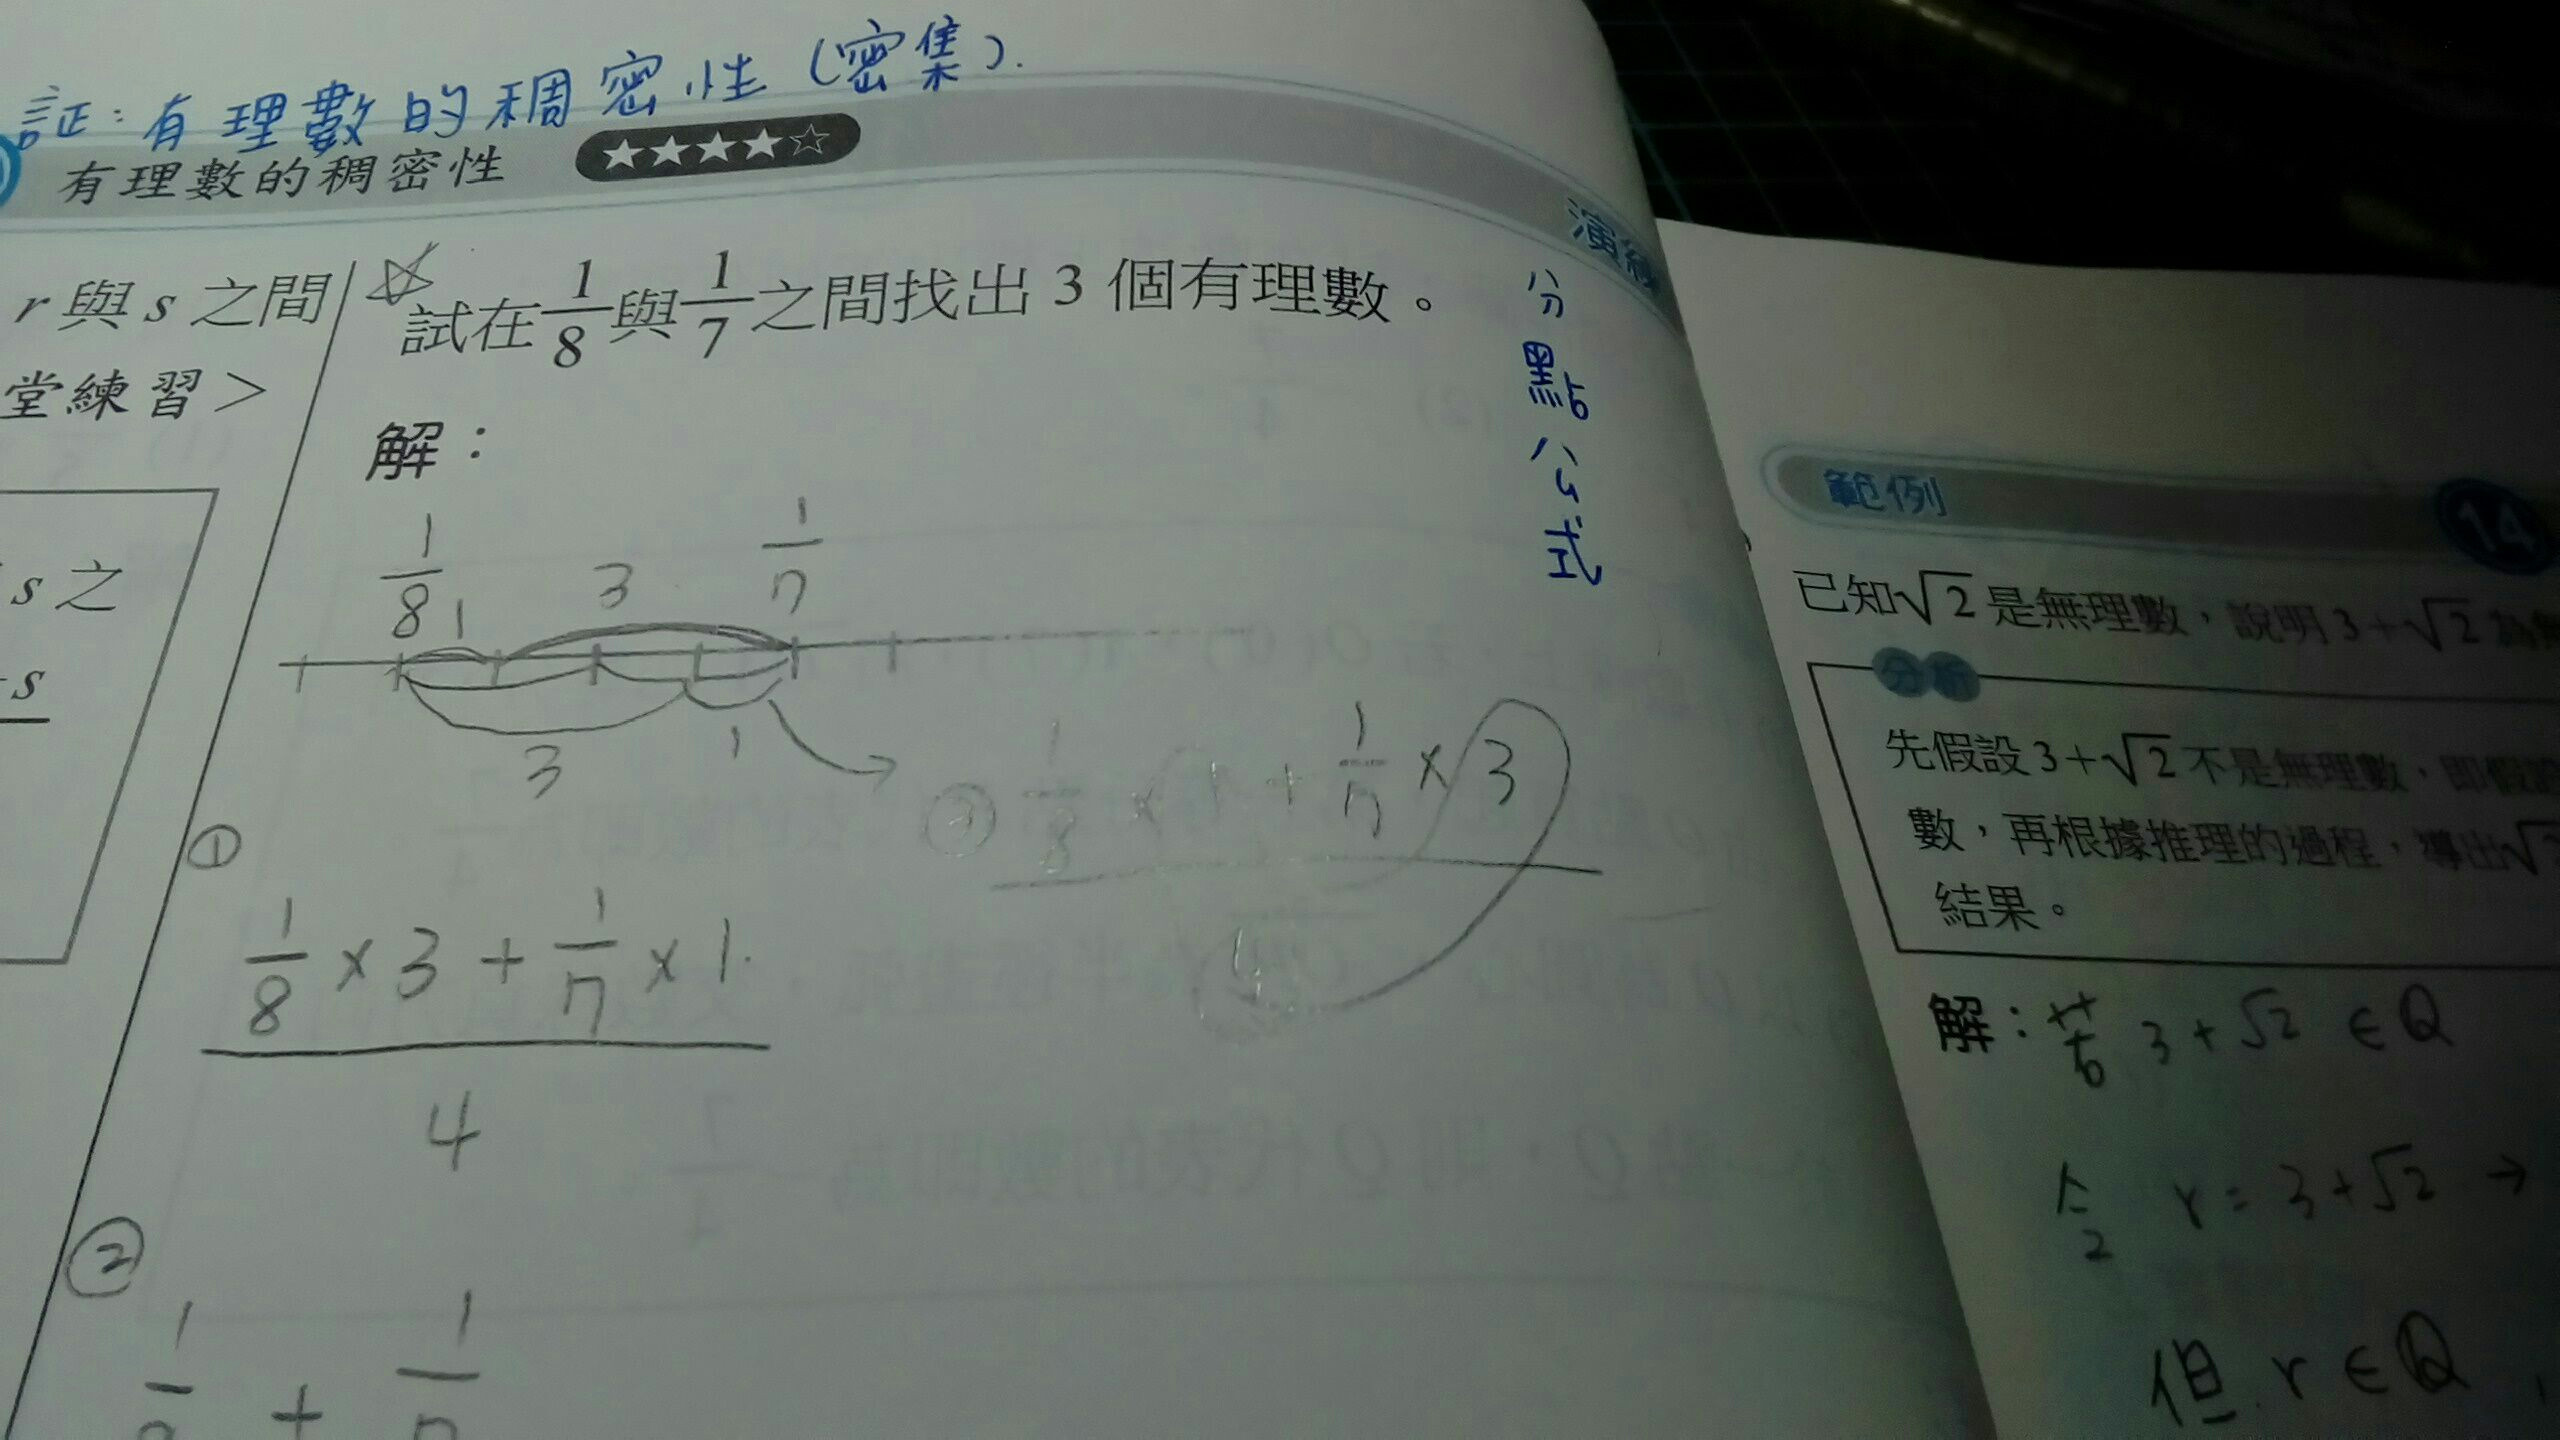 証：有理數的稠密性(密集).
有理數的稠密性 ★★★★☆
演練
r與s之間
堂練習>
s之
s
☆
試在1/8與1/7之間找出3個有理數。
分點公式
解：
1/8 1/7
1 3
3 1
①
(1/8 × 3 + 1/7 × 1) / 4
③ (1/8 × 1 + 1/7 × 3) / 4
②
範例 14
已知√2是無理數，說明3+√2為
分析
先假設3+√2不是無理數，即假設
數，再根據推理的過程，導出√
結果。
解：若 3+√2 ∈ Q
令 r = 3+√2 →
但 r ∈ Q